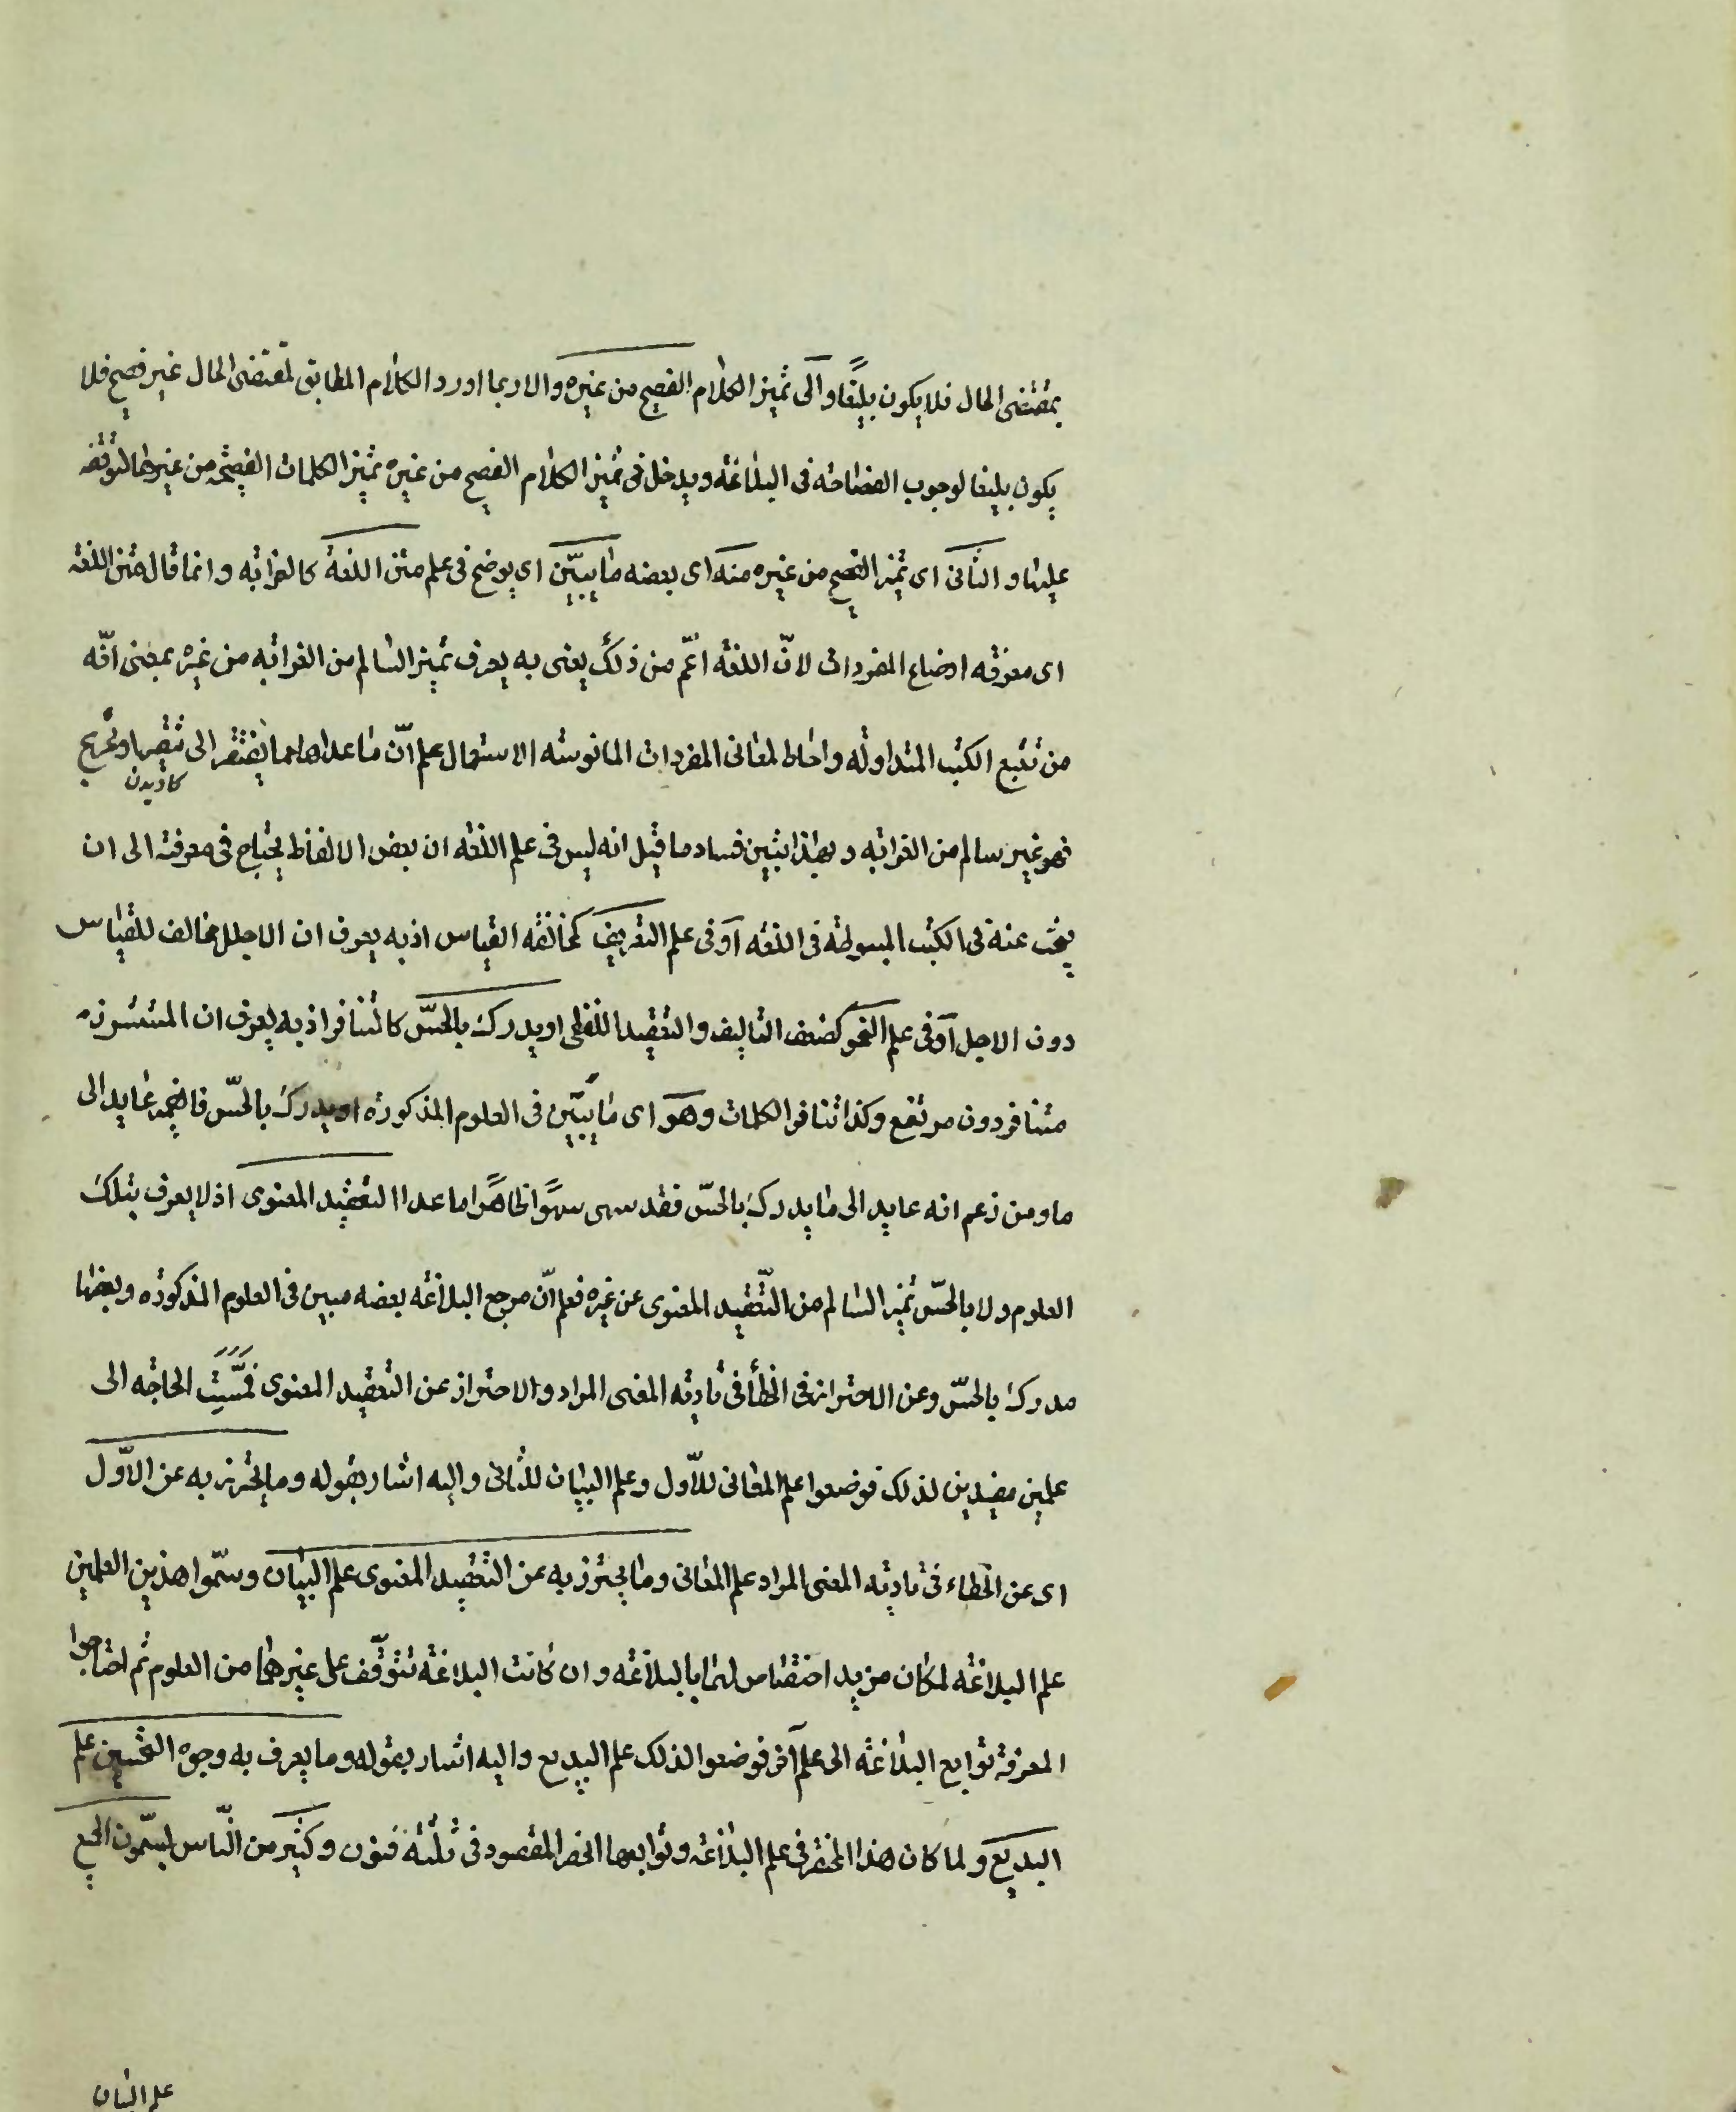 بمقتضى الحال فلا يكون بليغًا وآلى تميز الكلام الفصيح من غيره والا ربما اورد الكلام المطابق لمقتضى الحال غير فصيح فلا
يكون بليغا لوجوب الفصاحة فى البلاغة ويدخل فى تميز الكلام الفصيح من غيره تميز الكلمات الفصيحة من غيرها لتوقفه
عليها و الثانى اى تميز الفصيح من غيره منه اى بعضه ما يبيّن اى يوضح فى علم متن اللغة كالغرابة وانما قال متن اللغة
اى معرفة اوضاع المفردات لانّ اللغة اعمّ من ذلك يعنى به يعرف تميز السالم من الغرابة من غيره بمعنى انّه
من تتبع الكتب المتداولة واحاط لمعانى المفردات المانوسة الاستعمال علم انّ ما عداها مما يفتقر الى تنقير او تخريج
كاويدن
فهو غير سالم من الغرابة وبهذا يتبين فساد ما قيل انه ليس فى علم اللغة ان بعض الالفاظ يحتاج فى معرفته الى ان
يبحث عنه فى الكتب المبسوطة فى اللغة آو فى علم التصريف كمخالفة القياس اذ به يعرف ان الاجلل مخالف للقياس
دون الاجل آو فى علم النحو كضعف التاليف والتعقيد اللفظى او يدرك بالحسّ كالتنافر اذ به يعرف ان المستشزر
متنافر دون مرتفع وكذا تنافر الكلمات وهو اى ما يبيّن فى العلوم المذكورة او يدرك بالحسّ فالضمير عايد الى
ما ومن زعم انه عايد الى ما يدرك بالحسّ فقد سهى سهوًا ظاهرًا ما عدا التعقيد المعنوى اذ لا يعرف بتلك
العلوم ولا بالحسّ تميز السالم من التّعقيد المعنوى عن غيره فعلم انّ مرجع البلاغة بعضه مبين فى العلوم المذكورة وبعضها
مدرك بالحسّ وعن الاحتراز فى الخطأ فى تادية المعنى المراد والاحتراز عن التعقيد المعنوى فمسّت الحاجة الى
علمين مفيدين لذلك فوضعوا علم المعانى للاّول وعلم البيان للثانى واليه اشار بقوله وما يحترز به عن الاوّل
اى عن الخطاء فى تادية المعنى المراد علم المعانى وما يحترز به عن التعقيد المعنوى علم البيان وسمّوا هذين العلمين
علم البلاغة لمكان مزيد اختصاص لهما بالبلاغة وان كانت البلاغة تتوقّف على غيرهما من العلوم ثم احتاجوا
المعرفة توابع البلاغة الى علم آخر فوضعوا لذلك علم البديع واليه اشار بقوله وما يعرف به وجوه التحسين علم
البديع ولما كان هذا المختصر فى علم البلاغة وتوابعها انحصر المقصود فى ثلثة فنون وكثير من النّاس يسمّون الجميع
علم البيان